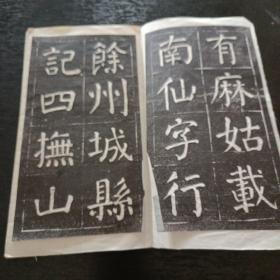 有麻姑載
南仙字行
餘州城縣
記四撫山